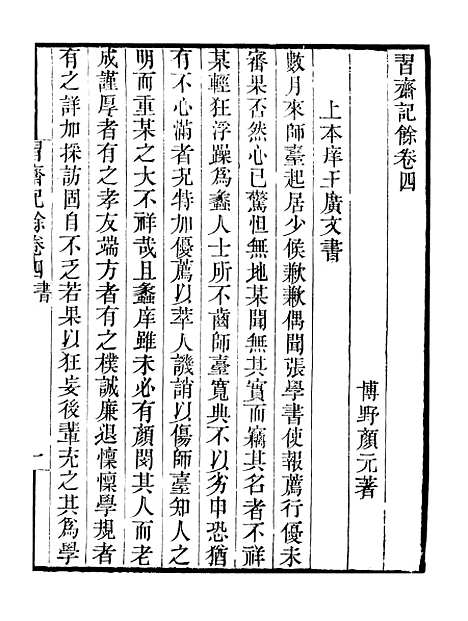 習齋記餘卷四
博野顏元著
上本庠王廣文書
數月來師臺起居少候歉歉偶聞張學書使報薦行優未
審果否然心已驚怛無地某聞無其實而竊其名者不祥
某輕狂浮躁爲蠡人士所不齒師臺寬典不以劣申恐猶
有不心滿者況特加優薦以萃人譏誚以傷師臺知人之
明而重某之大不祥哉且蠡庠雖未必有顏閔其人而老
成謹厚者有之孝友端方者有之樸誠廉退懍懍學規者
有之詳加採訪固自不乏若果以狂妄後輩充之其爲學
習齋記餘卷四 書 一